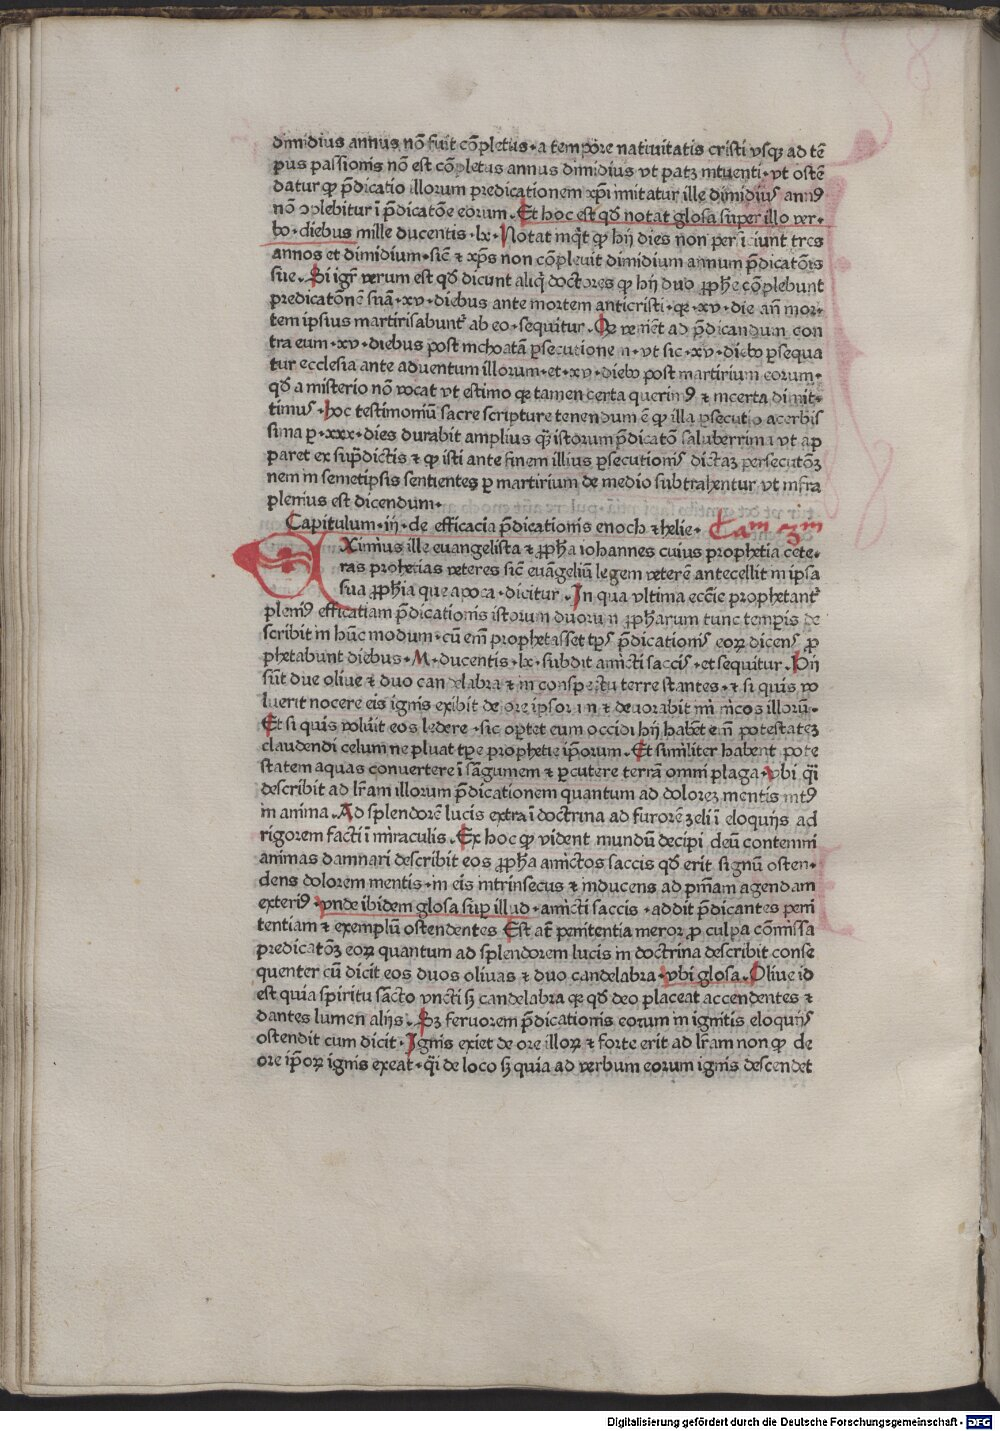 dimidius annus nõ fuit cõpletus · a tempore natiuitatis cristi vsqꝫ ad tẽ
pus passionis nõ est cõpletus annus dimidius vt patꝫ intuenti · vt ostẽ
datur ꝙ p̃dicatio illorum predicationem xp̃i imitatur ille dimidiuꝰ annꝰ
nõ ꝯplebitur ĩ p̃dicatõe eorum · Et hoc est qď notat glosa super illo ver·
bo · diebus mille ducentis · lx · Notat inq̃t ꝙ hij dies non perficiunt tres
annos et dimidium · sic̃ ⁊ xp̃s non cõpleuit dimidium annum p̃dicatõis
sue · Si igr̃ verum est qď dicunt aliq̃ doctores ꝙ hij duo ꝓphe cõplebunt
predicatõnẽ suã · xv · diebus ante mortem anticristi · qꝛ · xv · die añ mor·
tem ipsius martirisabunt̃ ab eo · sequitur · Qꝛ veniẽt ad p̃dicandum con
tra eum · xv · diebus post inchoatã ꝑsecutionem · vt sic · xv · diebꝰ ꝑsequa
tur ecclesia ante aduentum illorum · et · xv · diebꝰ post martirium eorum ·
qď a misterio nõ vocat vt estimo qꝛ tamen certa querimꝰ ⁊ incerta dimit·
timus · hoc testimoniũ sacre scripture tenendum ẽ ꝙ illa ꝑsecutio acerbis
sima ꝑ · xxx · dies durabit amplius q̃ istorum p̃dicatõ saluberrima vt ap
paret ex sup̃dictis ⁊ ꝙ isti ante finem illius ꝑsecutionis dictaꝫ persecutõꝫ
nem in semetipsis sentientes ꝑ martirium de medio subtrahentur vt infra
plenius est dicendum ·
Capitulum · iij · de efficacia p̃dicationis enoch ⁊ helie · Cam 3m
Ximius ille euangelista ⁊ ꝓph̃a iohannes cuius prophetia cete·
ras prohetias veteres sic̃ euãgeliũ legem veterẽ antecellit in ipsa
sua ꝓph̃ia que apoca · dicitur · In qua vltima ecc̃ie prophetant̃
plenꝰ efficatiam p̃dicationis istorum duorum ꝓpharum tunc temp̃is de
scribit in hũc modum · cũ em̃ prophetasset tp̃s p̃dicationis eoꝝ dicens ꝓ
phetabunt diebus · M · ducentis · lx · subdit amicti saccis · et sequitur · Hij
sũt due oliue ⁊ duo candelabra ⁊ in conspectu terre stantes · ⁊ si quis vo
luerit nocere eis ignis exibit de ore ipsorum ⁊ deuorabit inimicos illorũ ·
Et si quis volũit eos ledere · sic op̃tet eum occidi hij habẽt em̃ potestateꝫ
claudendi celum ne pluat tp̃e prophetie ip̃orum · Et similiter habent pote
statem aquas conuertere ĩ sãguinem ⁊ ꝑcutere terrã omni plaga · vbi q̃i
describit ad lr̃am illorum p̃dicationem quantum ad doloreꝫ mentis intꝰ
in anima · Ad splendorẽ lucis extra ĩ doctrina ad furorẽ zeli ĩ eloquijs ad
rigorem facti ĩ miraculis · Ex hoc ꝙ vident mundũ decipi deũ contemni
animas damnari describit eos ꝓph̃a amictos saccis qď erit signũ osten·
dens dolorem mentis · in eis intrinsecus ⁊ inducens ad pñiam agendam
exteriꝰ · vnde ibidem glosa suꝑ illud · amicti saccis · addit p̃dicantes peni
tentiam ⁊ exemplũ ostendentes Est at̃ penitentia meror ꝓ culpa cõmissa
predicatõꝫ eoꝝ quantum ad splendorem lucis in doctrina describit conse
quenter cũ dicit eos duos oliuas ⁊ duo candelabra · vbi glosa · Oliue id
est quia spiritu sãcto vncti sꝫ candelabra qꝛ qď deo placeat accendentes ⁊
dantes lumen alijs · Sꝫ feruorem p̃dicationis eorum in ignitis eloquijs
ostendit cum dicit · Ignis exiet de ore illoꝝ ⁊ forte erit ad lr̃am non ꝙ de
ore ip̃oꝝ ignis exeat · q̃i de loco sꝫ quia ad verbum eorum ignis descendet
Digitalisierung gefördert durch die Deutsche Forschungsgemeinschaft - DFG